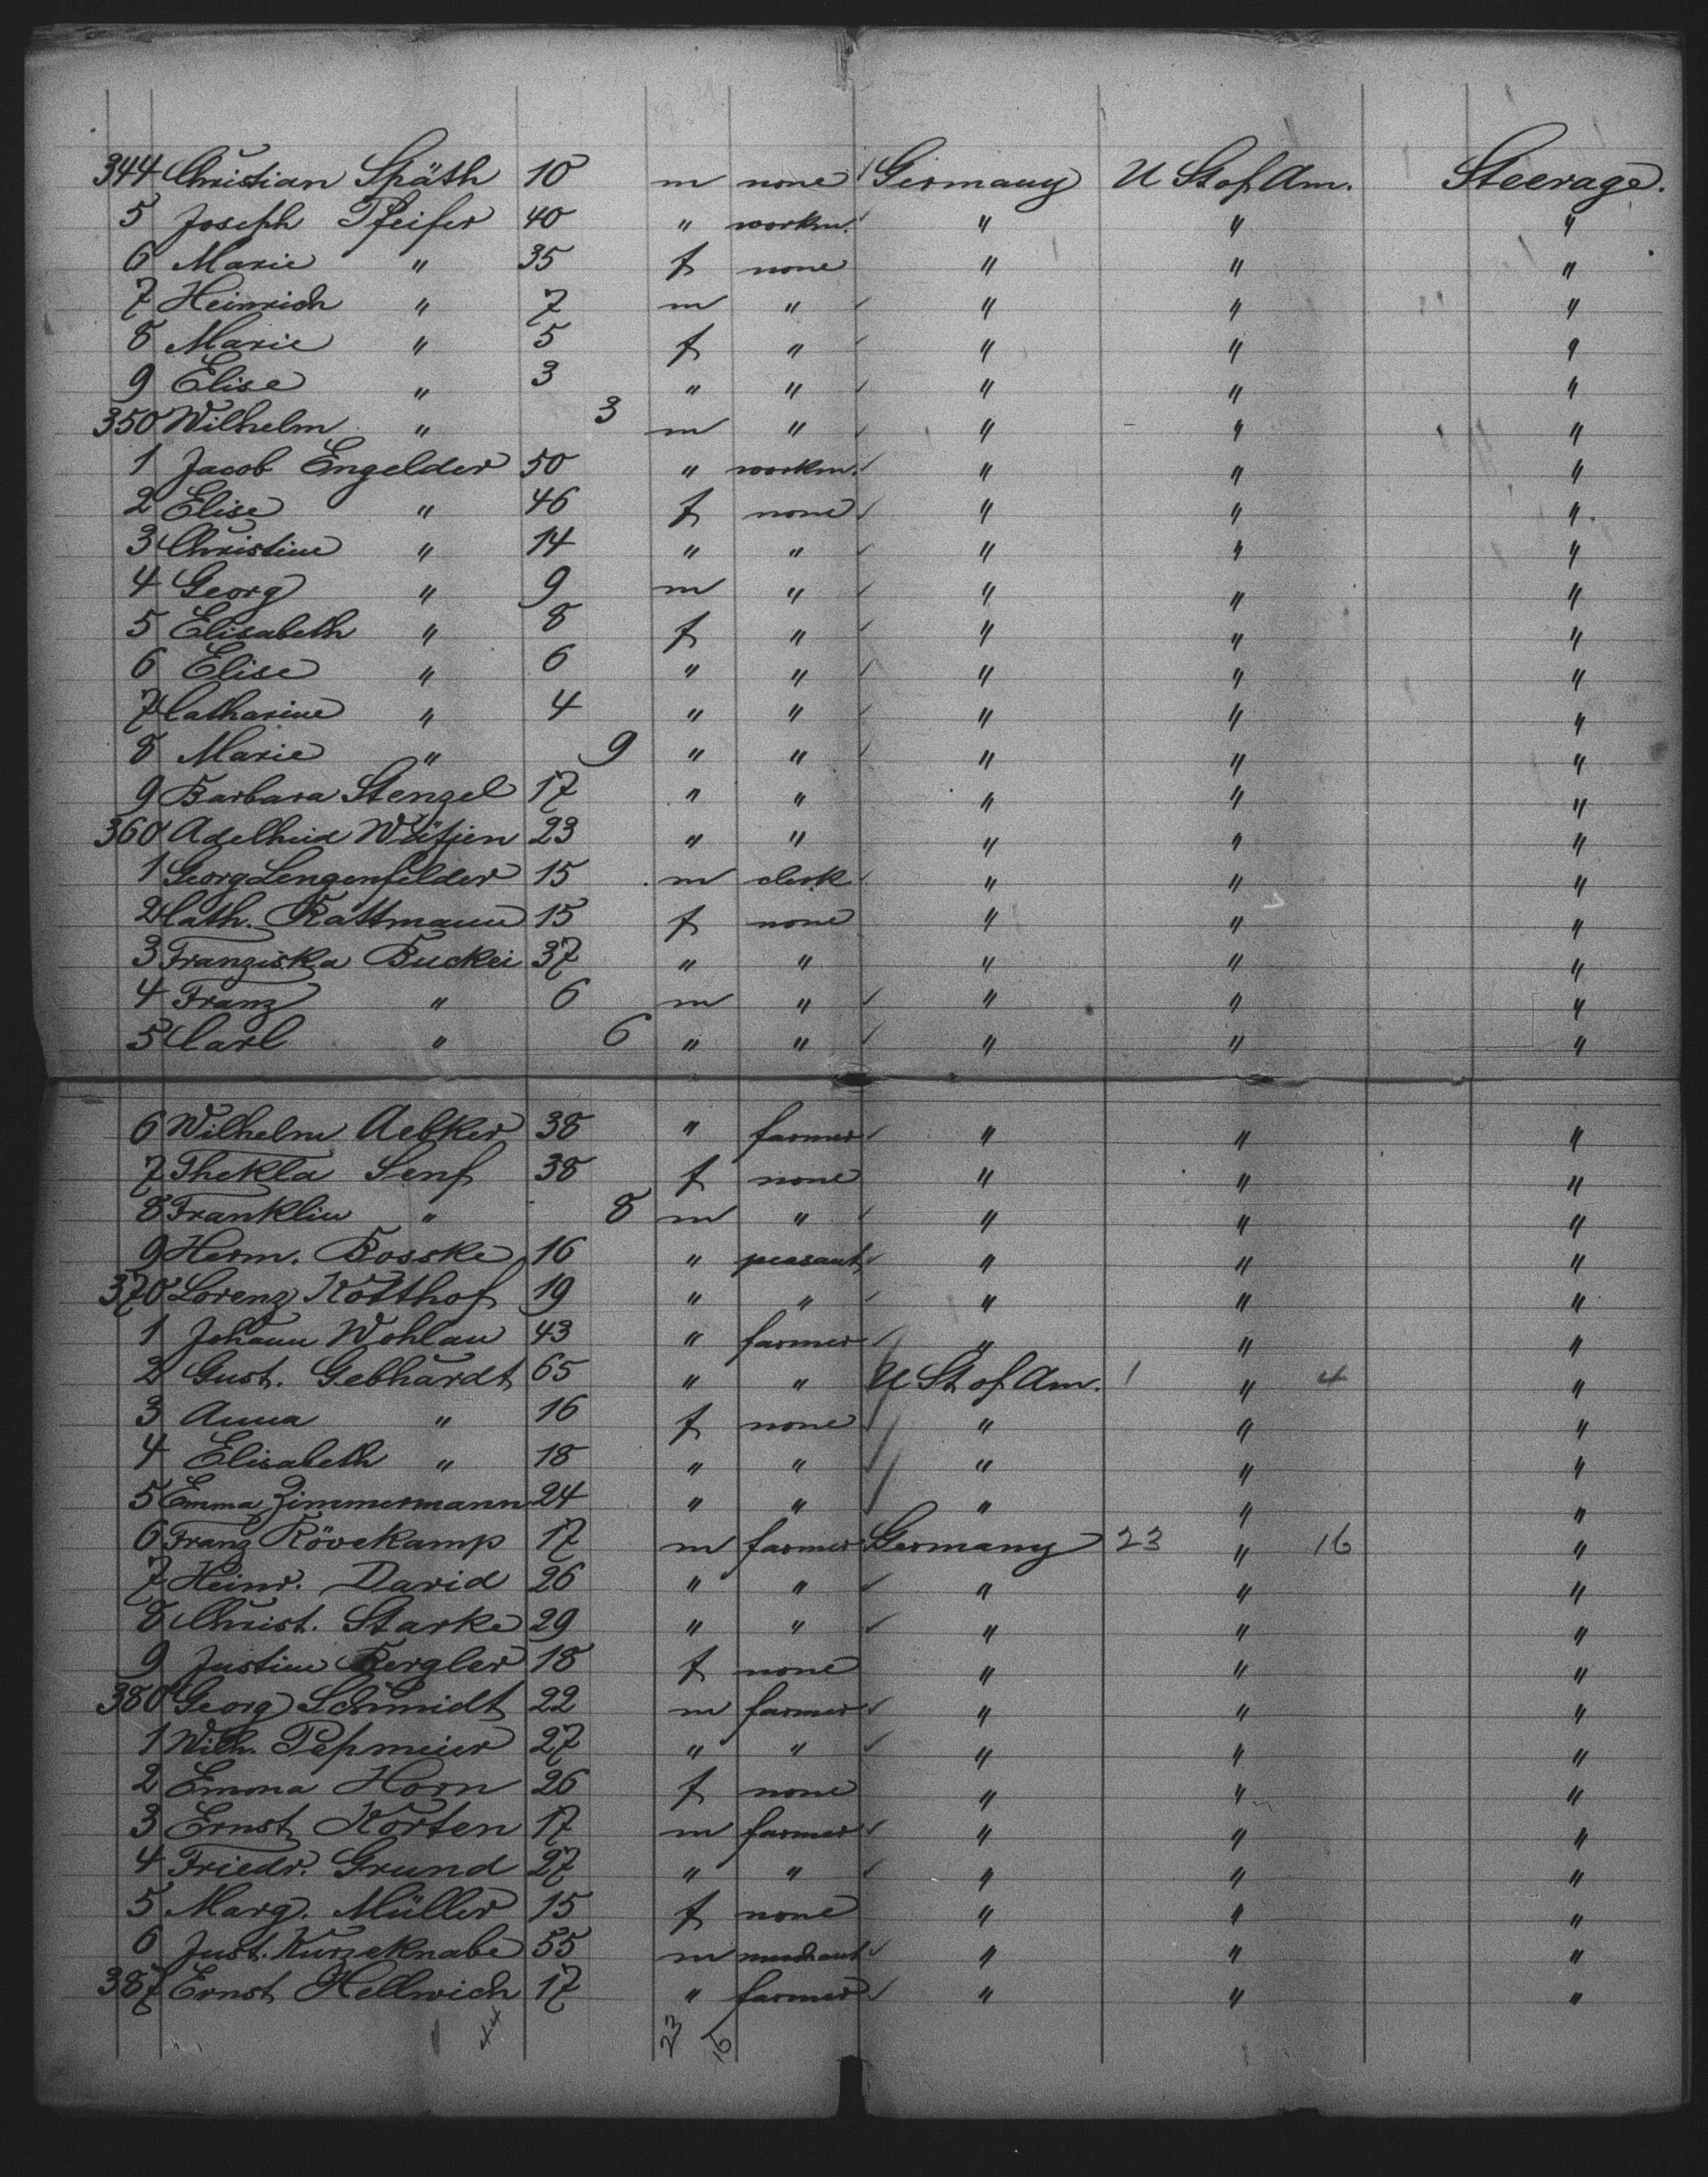 344 Christian Späth 10 m none Germany U St of Am. Steerage.
5 Joseph Pfeifer 40 " workm. " " "
6 Marie " 35 f none " " "
7 Heinrich " 7 m " " " "
8 Marie " 5 f " " " "
9 Elise " 3 " " " " "
350 Wilhelm " 3 m " " " "
1 Jacob Engelder 50 " workm. " " "
2 Elise " 46 f none " " "
3 Christine " 14 " " " " "
4 Georg " 9 m " " " "
5 Elisabeth " 8 f " " " "
6 Elise " 6 " " " " "
7 Catharine " 4 " " " " "
8 Marie " 9 " " " " "
9 Barbara Stenzel 17 " " " " "
360 Adelheid Wütjen 23 " " " " "
1 Georg Lengenfelder 15 m clerk " " "
2 Cath. Rattmann 15 f none " " "
3 Franziska Buckei 37 " " " " "
4 Franz " 6 m " " " "
5 Carl " 6 " " " " "
6 Wilhelm Aebker 38 " farmer " " "
7 Thekla Senf 38 f none " " "
8 Franklin " 8 m " " " "
9 Herm. Bosske 16 " peasant " " "
370 Lorenz Kotthof 19 " " " " "
1 Johann Wohlau 43 " farmer " " "
2 Gust. Gebhardt 65 " " U St of Am. 1 " 4 "
3 Anna " 16 f none " " "
4 Elisabeth " 18 " " " " "
5 Emma Zimmermann 24 " " " " "
6 Franz Rövekamp 17 m farmer Germany 23 " 16 "
7 Heinr. David 26 " " " " "
8 Christ. Starke 29 " " " " "
9 Justine Bergler 18 f none " " "
380 Georg Schmidt 22 m farmer " " "
1 Wilh. Pepmeier 27 " " " " "
2 Emma Horn 26 f none " " "
3 Ernst Korten 17 m farmer " " "
4 Friedr. Grund 27 " " " " "
5 Marg. Müller 15 f none " " "
6 Just. Kurzeknabe 55 m merchant " " "
387 Ernst Hellwich 17 " farmer " " "
44 23 16